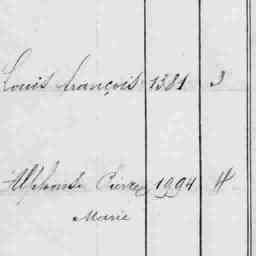 Louis françois 1381 J
Alphonse Pierre 1994 H
Marie